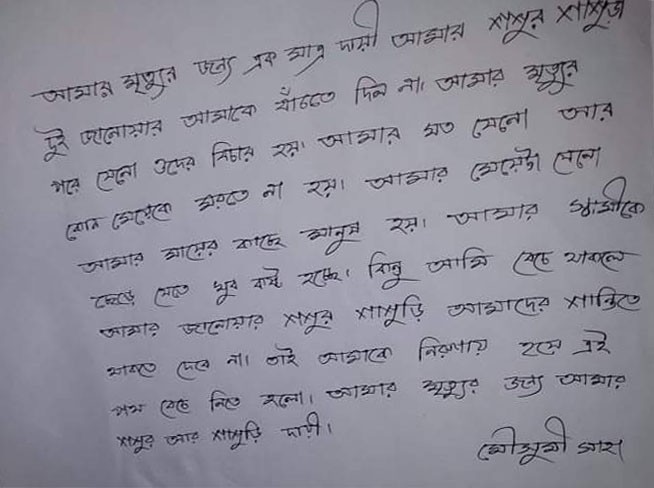 আমার মৃত্যুর জন্য এক মাত্র দায়ী আমার শশুর শাশুড়ি
দুই জানোয়ার আমাকে বাঁচতে দিল না। আমার মৃত্যুর
পরে যেনো ওদের বিচার হয়। আমার মত যেনো আর
কোন মেয়েকে মরতে না হয়। আমার মেয়েটা যেনো
আমার মায়ের কাছে মানুষ হয়। আমার স্বামীকে
ছেড়ে যেতে খুব কষ্ট হচ্ছে। কিন্তু আমি বেচে থাকলে
আমার জানোয়ার শশুর শাশুড়ি আমাদের শান্তিতে
থাকতে দেবে না। তাই আমাকে নিরুপায় হয়ে এই
পথ বেচে নিতে হলো। আমার মৃত্যুর জন্য আমার
শশুর আর শাশুড়ি দায়ী।
মৌসুমী সাহা